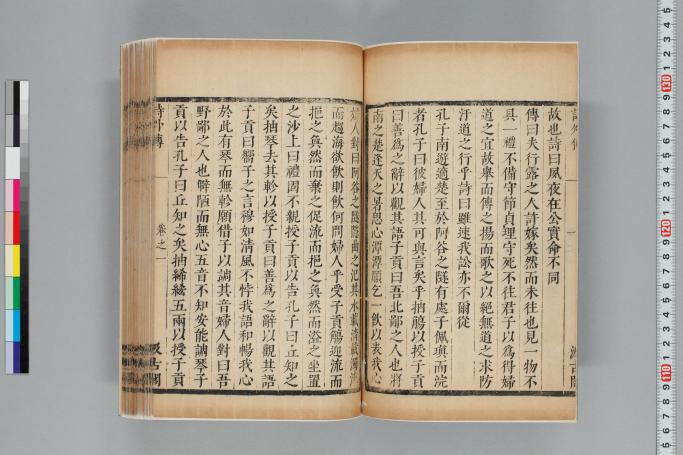 故也詩曰夙夜在公實命不同
傳曰夫行露之人許嫁矣然而未往也見一物不
具一禮不備守節貞理守死不往君子以為得婦
道之宜故舉而傳之揚而歌之以絕無道之求防
汙道之行乎詩曰雖速我訟亦不爾從
孔子南遊適楚至於阿谷之隧有處子佩瑱而浣
者孔子曰彼婦人其可與言矣乎抽觴以授子貢
曰善為之辭以觀其語子貢曰吾北鄙之人也將
南之楚逢天之暑思心潭潭願乞一飲以表我心
婦人對曰阿谷之隧隱曲之汜其水載清載濁流
而趨海欲飲則飲何問婦人乎受子貢觴迎流而
挹之奐然而棄之促流而挹之奐然而溢之坐置
之沙上曰禮固不親授子貢以告孔子曰丘知之
矣抽琴去其軫以授子貢曰善為之辭以觀其語
子貢曰嚮子之言穆如清風不悖我語和暢我心
於此有琴而無軫願借子以調其音婦人對曰吾
野鄙之人也僻陋而無心五音不知安能調琴子
貢以告孔子曰丘知之矣抽絺綌五兩以授子貢
詩外傳
卷之一
汲古閣
130
120
110